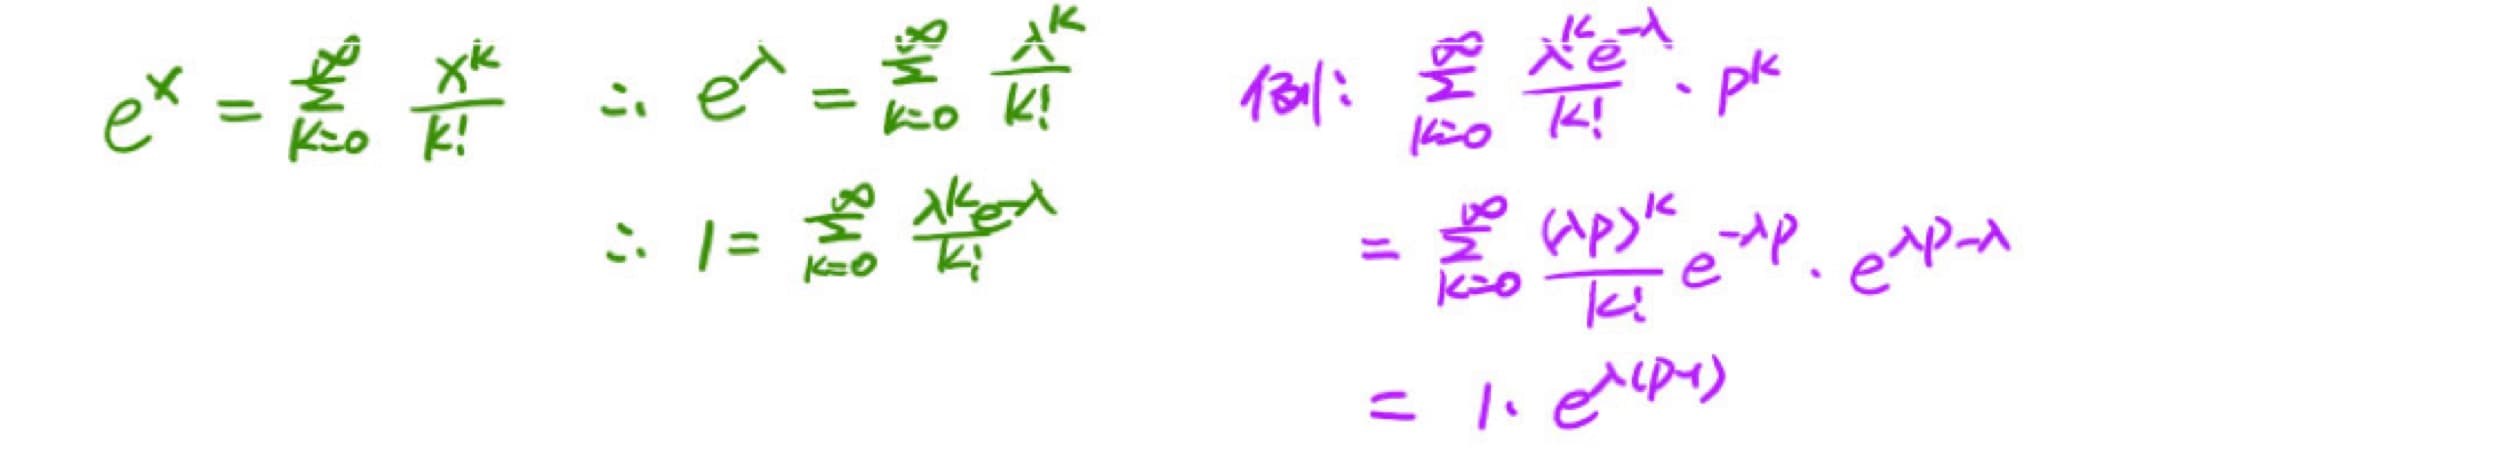 e^x = Σ_{k=0}^{∞} x^k / k!  ∴ e^λ = Σ_{k=0}^{∞} λ^k / k!
∴ 1 = Σ_{k=0}^{∞} λ^k e^{-λ} / k!
例: Σ_{k=0}^{∞} λ^k e^{-λ} / k! · p^k
= Σ_{k=0}^{∞} (λp)^k / k! e^{-λp} · e^{λp-λ}
= 1 · e^{λ(p-1)}